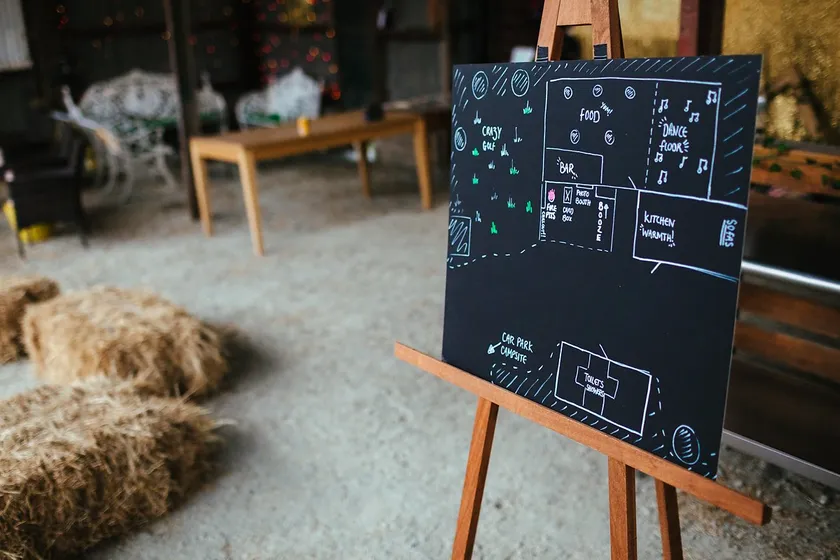 CRAZY
GOLF
FOOD
YUM!
DANCE
FLOOR
BAR
FIRE
PITS
CARD
BOX
PHOTO
BOOTH
BOOZE
KITCHEN
WARMTH!
SOFAS
CAR PARK
CAMPSITE
TOILETS
SHOWERS